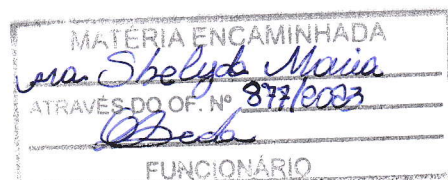 MATÉRIA ENCAMINHADA
Shelyda Maria
ATRAVÉS DO OF. Nº 877/2023
FUNCIONÁRIO